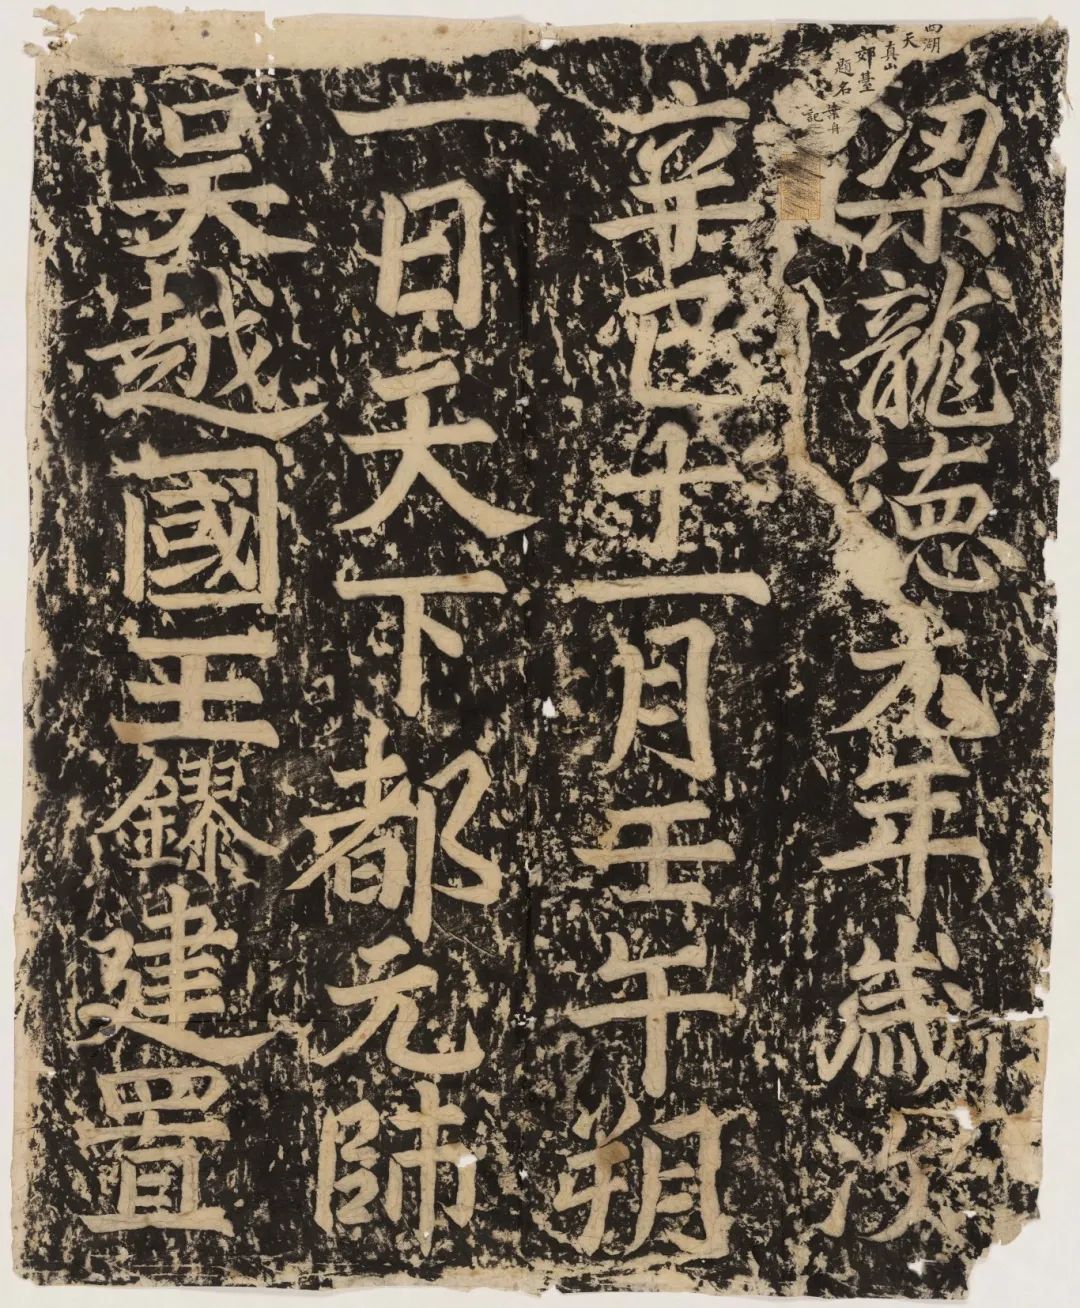 西湖
天真山
郊臺
題名
梁龍德元年歲次
辛巳十一月壬午朔
一日天下都元帥
吳越國王鏐建置